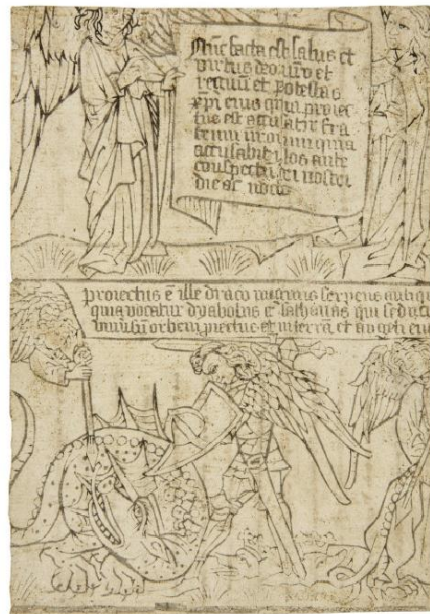 Nūc facta est salus et
virtus deo nr̄o et
regnū et potestas
xpi eius quia proiec
tus est accusator fra
trum nr̄orum qui
accusabat illos ante
conspectū dei nostri
die ac nocte
proiectus ē ille draco magnus serpens antiqu
qui vocatur dyabolus et sathanas qui seduci
orbem proiectus et in terrā et angeli eiu